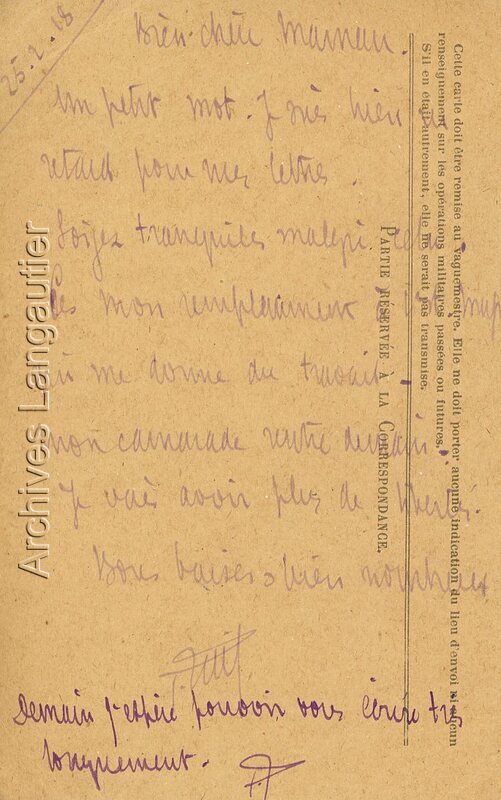 25.2.18
Bien chère Maman.
Un petit mot. Je suis bien en
retard pour mes lettres.
Soyez tranquiles malgré cela.
mon remplacement
me donne du travail.
mon camarade rentre demain.
Je vais avoir plus de liberté.
Bons baisers bien nombreux
Demain j'espère pouvoir vous écrire très
longuement.
Cette carte doit être remise au vaguemestre. Elle ne doit porter aucune indication du lieu d'envoi ni aucun
renseignement sur les opérations militaires passées ou futures.
S'il en était autrement, elle ne serait pas transmise.
PARTIE RÉSERVÉE À LA CORRESPONDANCE.
Archives Langautier